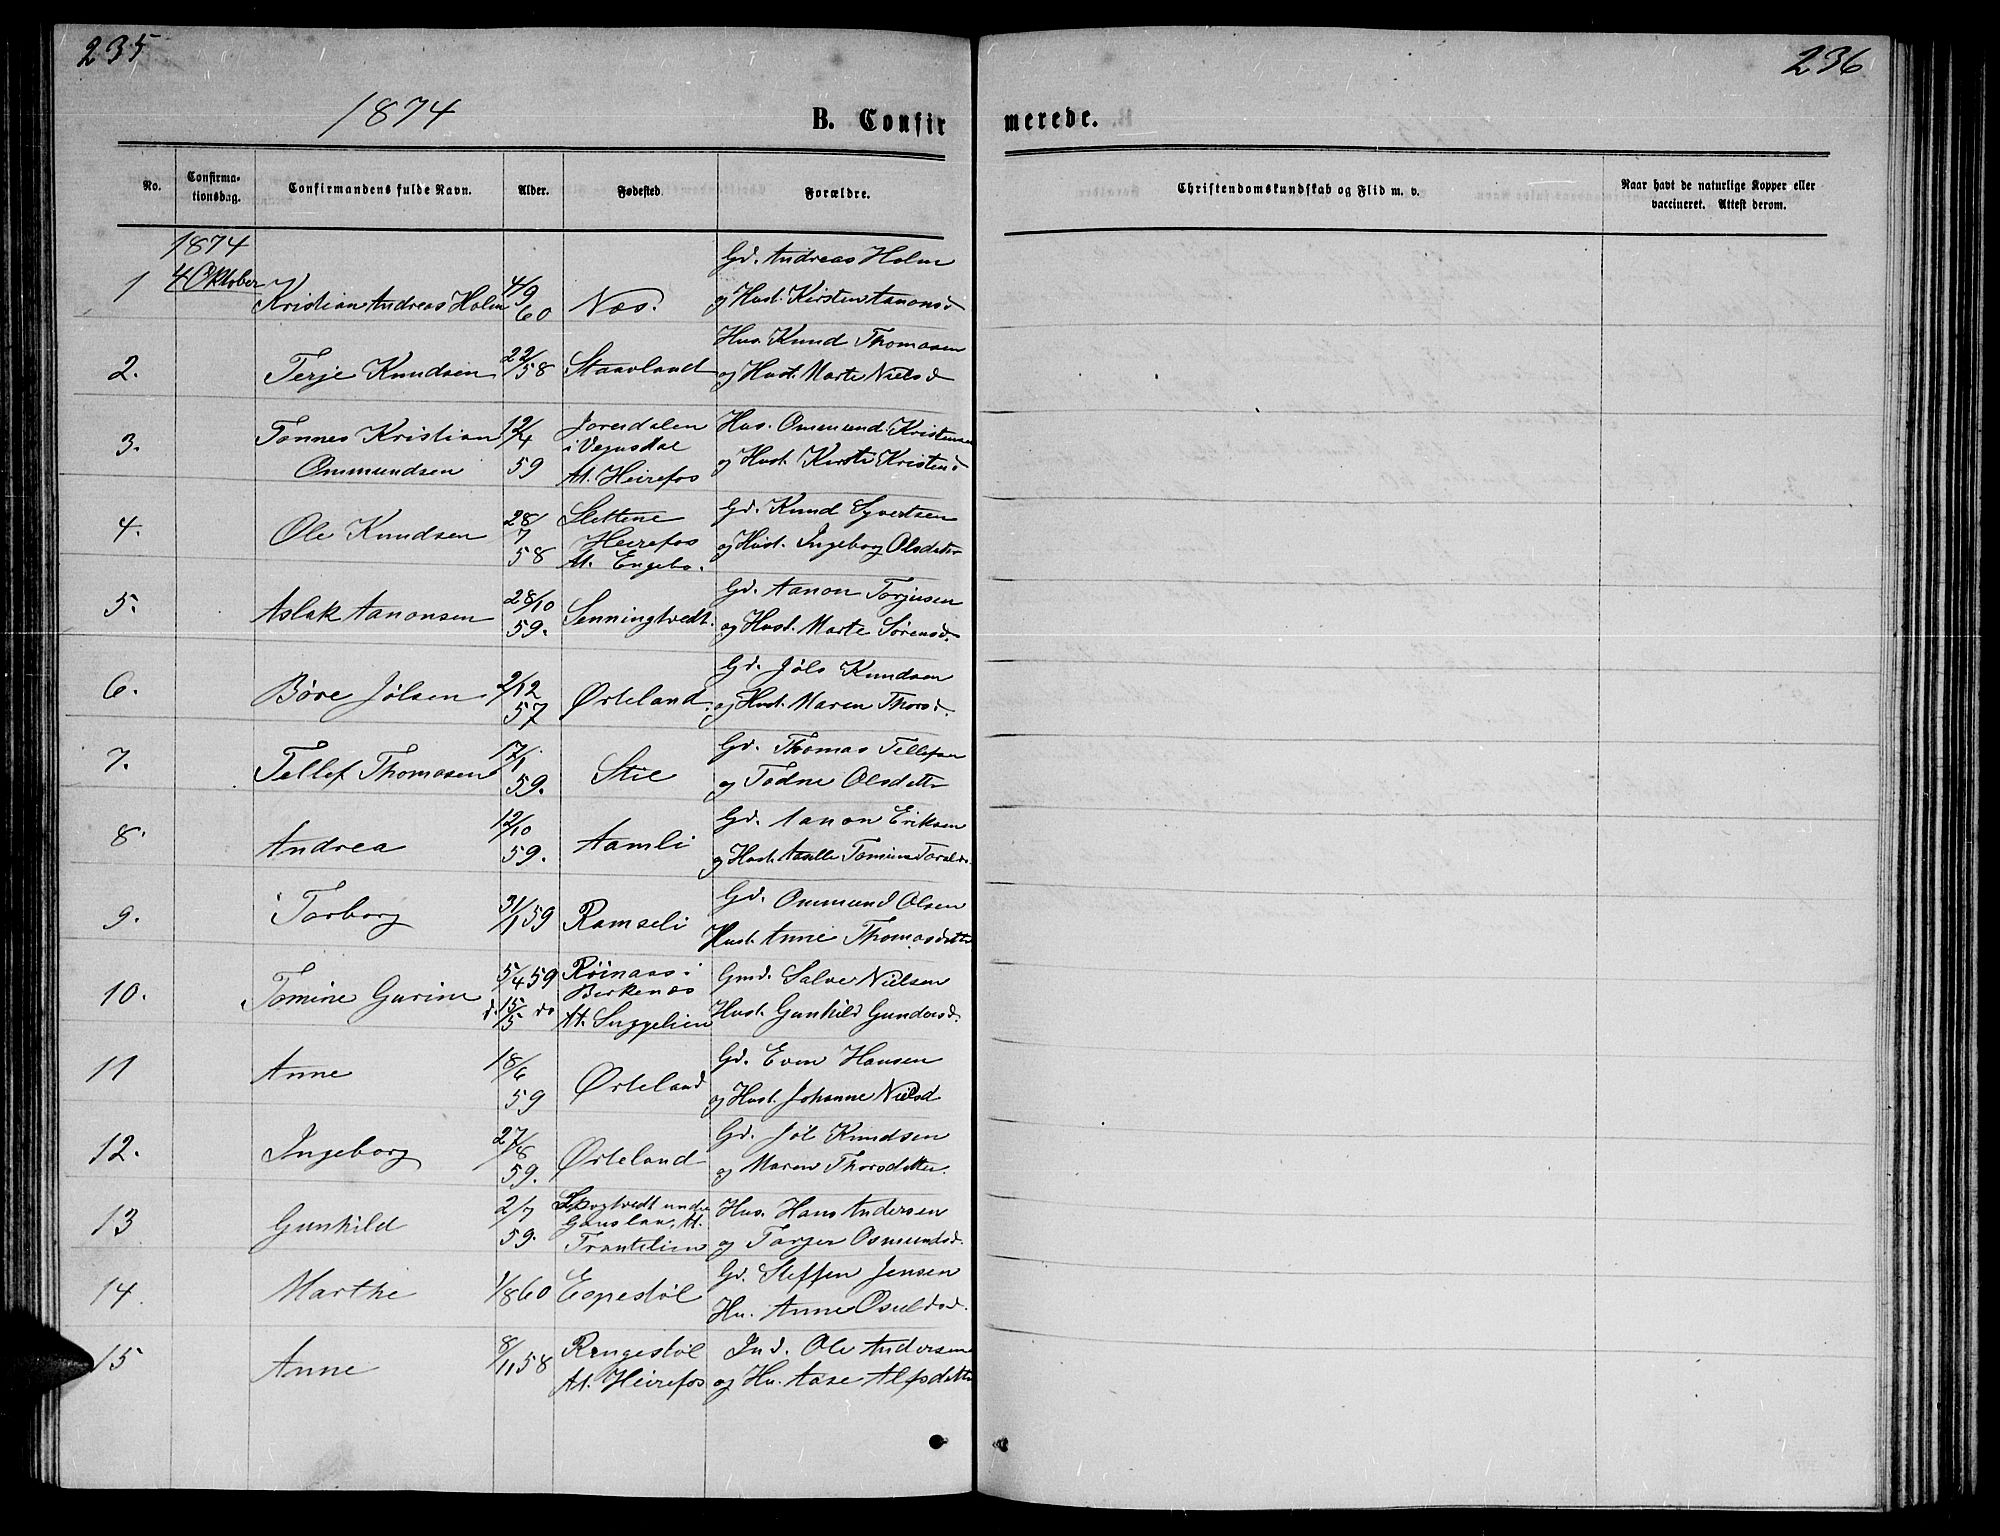 235
236
1874
B. Confirmerede.
No.
Confirmationsdag.
Confirmandens fulde Navn.
Alder.
Fødested.
Forældre.
Christendomskundskab og Flid m. v.
Naar havt de naturlige Kopper eller vaccineret. Attest derom.
1874
4 Oktober
1 Kristian Andreas Holm 4/9 60 Næs. Gd. Andreas Holm
og Hust. Kirsten Aanonsd
2. Terje Knudsen 22/ 58 Staavland Hus. Knud Thomasen
og Hust. Marte Nielsd
3. Tønnes Kristian 12/4 Hus. Ommund Kristensen
Ommundsen 59 i Vegusdal og Hust. Kirsti Kristensd
At. Heirefos
4. Ole Knudsen 28/7 58 Slettene Gd. Knud Syvertsen
Heirefos og Hust. Ingeborg Olsdatter
At. Engebo.
5. Aslak Aanonsen 28/10 59. Senningtvedt. Gd. Aanon Torjusen
og Hust. Marte Sørensd.
6. Børe Jølsen 2/12 57 Ørteland. Gd. Jøls Knudsen
og Hust. Maren Thorsd.
7. Tellef Thomasen 17/1 59. Stie Gd. Thomas Tellefsen
og Todne Olsdatter
8. Andrea 12/10 59. Aamli Gd. Aanon Eriksen
og Hust.
9. Torborg 31/1 59 Ramseli Gd. Ommund Olsen
Hust. Anne Thomasdatter
10. Tomine Gurine 5/4 59 Røinaas i Gmd. Salve Nielsen
d. 15/5 do Birkenæs Hust. Gunhild Gundersd.
At. Suggelien
11 Anne 18/6 59 Ørteland Gd. Even Hansen
og Hust. Johanne Nielsd
12. Ingeborg 27/8 59. Ørteland Gd. Jøl Knudsen
og Maren Thorsdatter.
13 Gunhild 2/7 59. under Hus. Hans Andersen
At. og Torger Osmundsd.
Trantelien
14. Marthe 1/8 60 Espestøl Gd. Steffen Jensen
Hu. Anne Osuldsd.
15 Anne 8/11 58 Rengestøl Ind. Ole Andersen
At. Heirefos og Hu. Aase Alfsdatter